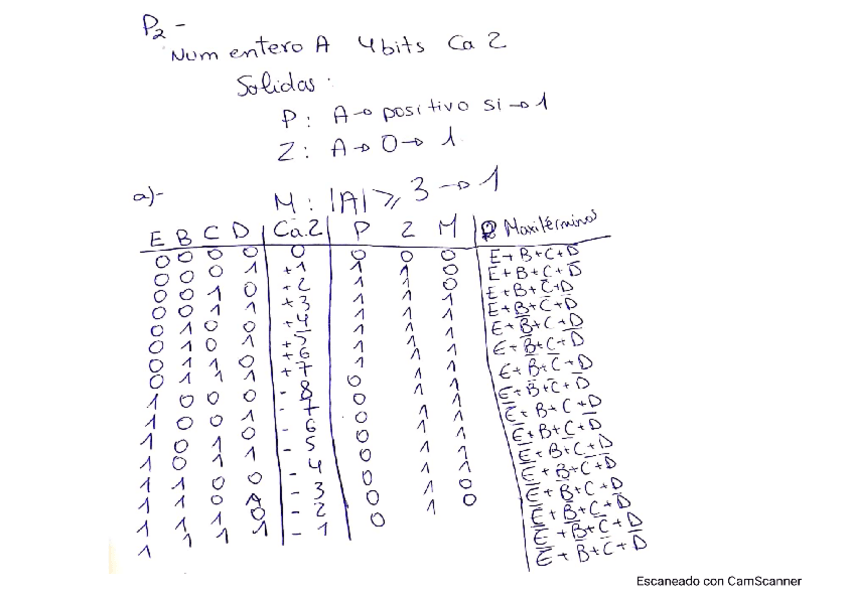 P2 -
Num entero A 4 bits Ca 2
Salidas :
P : A → positivo si → 1
Z : A → 0 → 1
a)-
M : |A| ≥ 3 → 1
E B C D | Ca.2 | P Z M | Maxitérminos
0 0 0 0 | 0 | 0 0 0 | E+B+C+D
0 0 0 1 | +1 | 1 1 0 | E+B+C+D̅
0 0 1 0 | +2 | 1 1 0 | E+B+C̅+D
0 0 1 1 | +3 | 1 1 1 | E+B+C̅+D̅
0 1 0 0 | +4 | 1 1 1 | E+B̅+C+D
0 1 0 1 | +5 | 1 1 1 | E+B̅+C+D̅
0 1 1 0 | +6 | 1 1 1 | E+B̅+C̅+D
0 1 1 1 | +7 | 1 1 1 | E+B̅+C̅+D̅
1 0 0 0 | -8 | 0 1 1 | E̅+B+C+D
1 0 0 1 | -7 | 0 1 1 | E̅+B+C+D̅
1 0 1 0 | -6 | 0 1 1 | E̅+B+C̅+D
1 0 1 1 | -5 | 0 1 1 | E̅+B+C̅+D̅
1 1 0 0 | -4 | 0 1 1 | E̅+B̅+C+D
1 1 0 1 | -3 | 0 1 1 | E̅+B̅+C+D̅
1 1 1 0 | -2 | 0 1 0 | E̅+B̅+C̅+D
1 1 1 1 | -1 | 0 1 0 | E̅+B̅+C̅+D̅
Escaneado con CamScanner